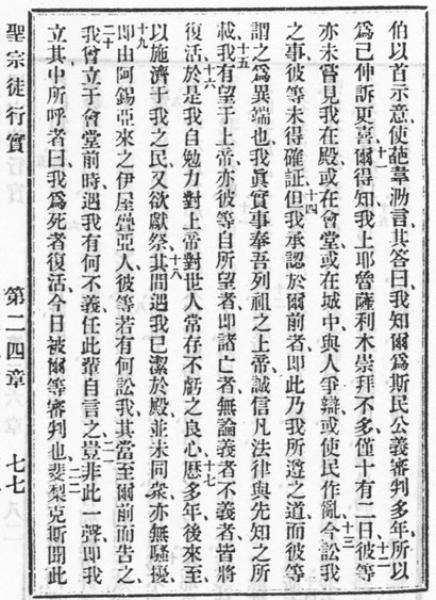 伯以首示意使葩韋泐言其答曰我知爾爲斯民公義審判多年所以
爲己伸訴更喜十一爾得知我上耶魯薩利木崇拜不多僅十有二日十二彼等
亦未嘗見我在殿或在會堂或在城中與人爭辯或使民作亂十三今訟我
之事彼等未得確証十四但我承認於爾前者即此乃我所遵之道而彼等
謂之爲異端也我眞實事奉吾列祖之上帝誠信凡法律與先知之所
載十五我有望于上帝亦彼等自所望者即諸亡者無論義者不義者皆將
復活十六於是我自勉力對上帝對世人常存不虧之良心十七厯多年後來至
以施濟于我之民又欲獻祭十八其間遇我已潔於殿並未同衆亦無騷擾
十九即由阿錫亞來之伊屋疊亞人彼等若有何訟我其當至爾前而告之
二十我曾立于會堂前時遇我有何不義任此輩自言之二一豈非此一聲即我
立其中所呼者曰我爲死者復活今日被爾等審判也二二斐梨克斯聞此
聖宗徒行實 第二四章 七七